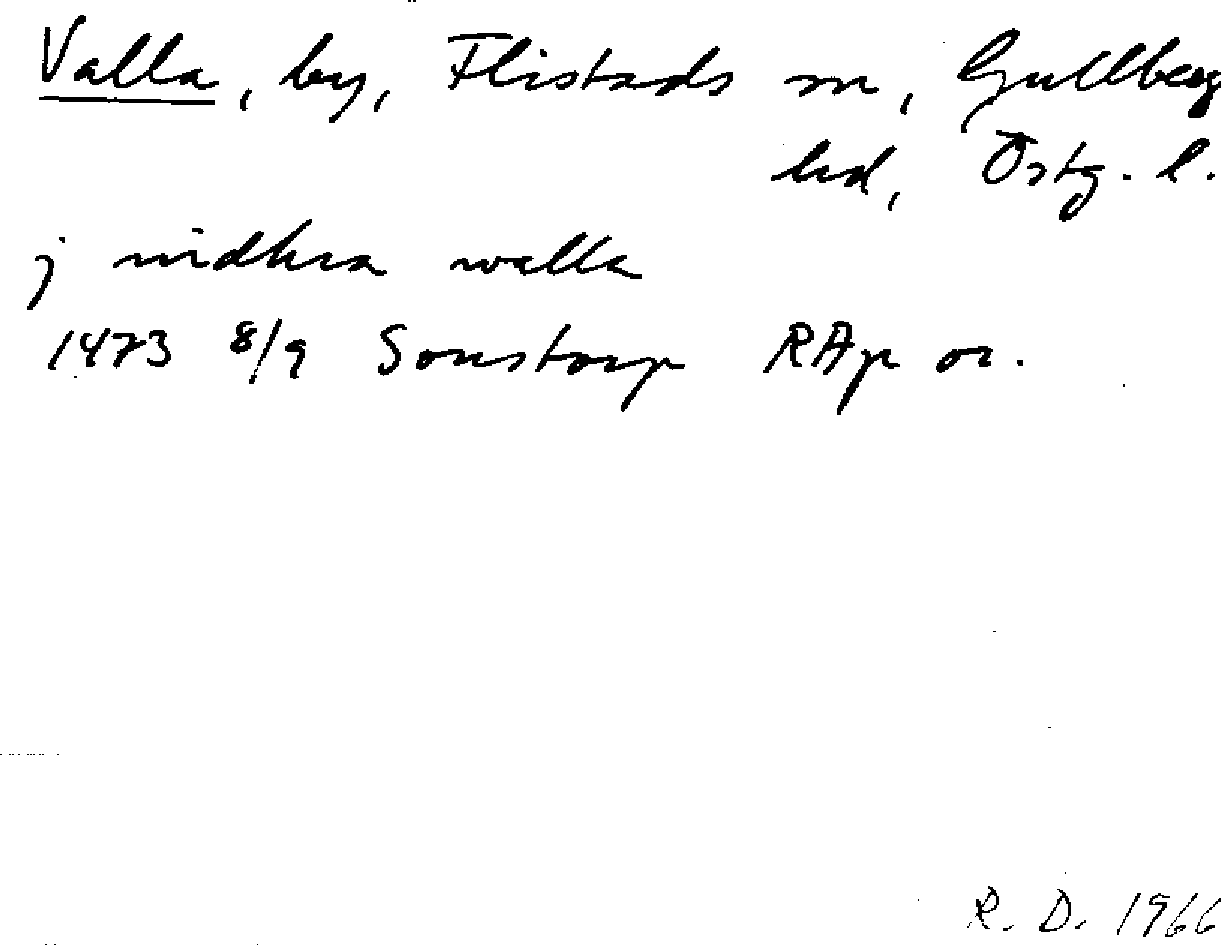 Valla, by, Flistads sn, Gullberg
hd, Östg. l.
j nidhra walla
1473 8/9 Sonstorp RAp or.
R. D. 1966